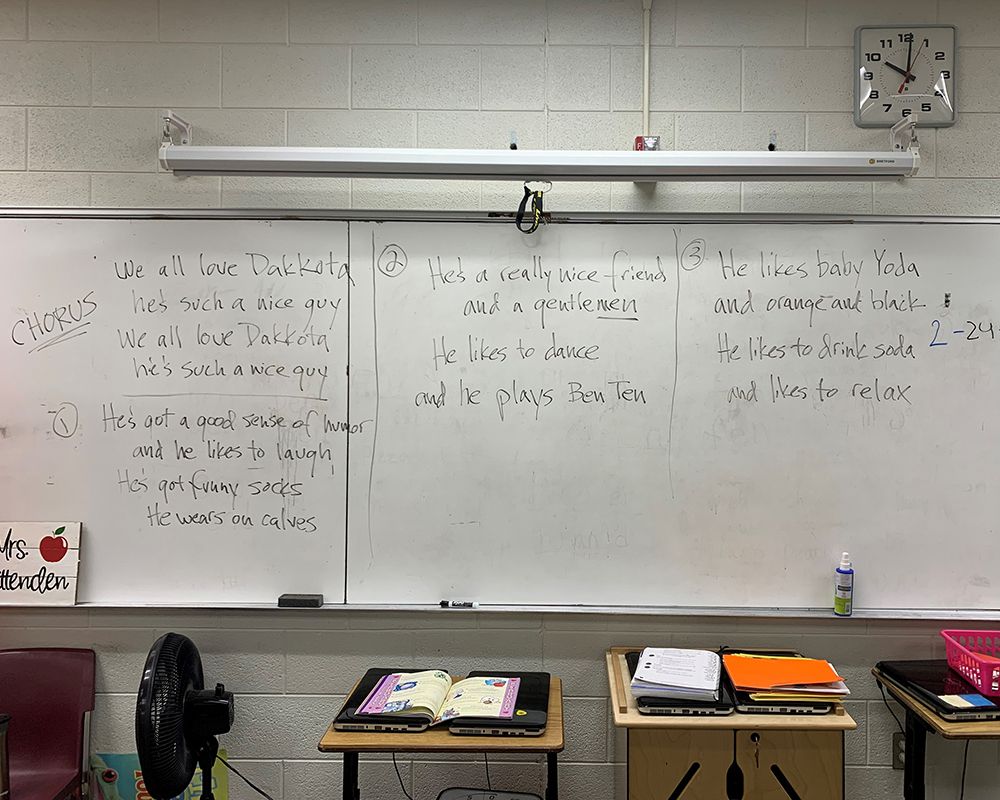 12
11
1
10
2
9
3
8
4
7
5
6
CHORUS
We all love Dakkota
he's such a nice guy
We all love Dakkota
he's such a nice guy
1 He's got a good sense of humor
and he likes to laugh
He's got funny socks
He wears on calves
2 He's a really nice friend
and a gentlemen
He likes to dance
and he plays Ben Ten
3 He likes baby Yoda
and orange and black
He likes to drink soda
and likes to relax
2-24
Mrs.
ttenden